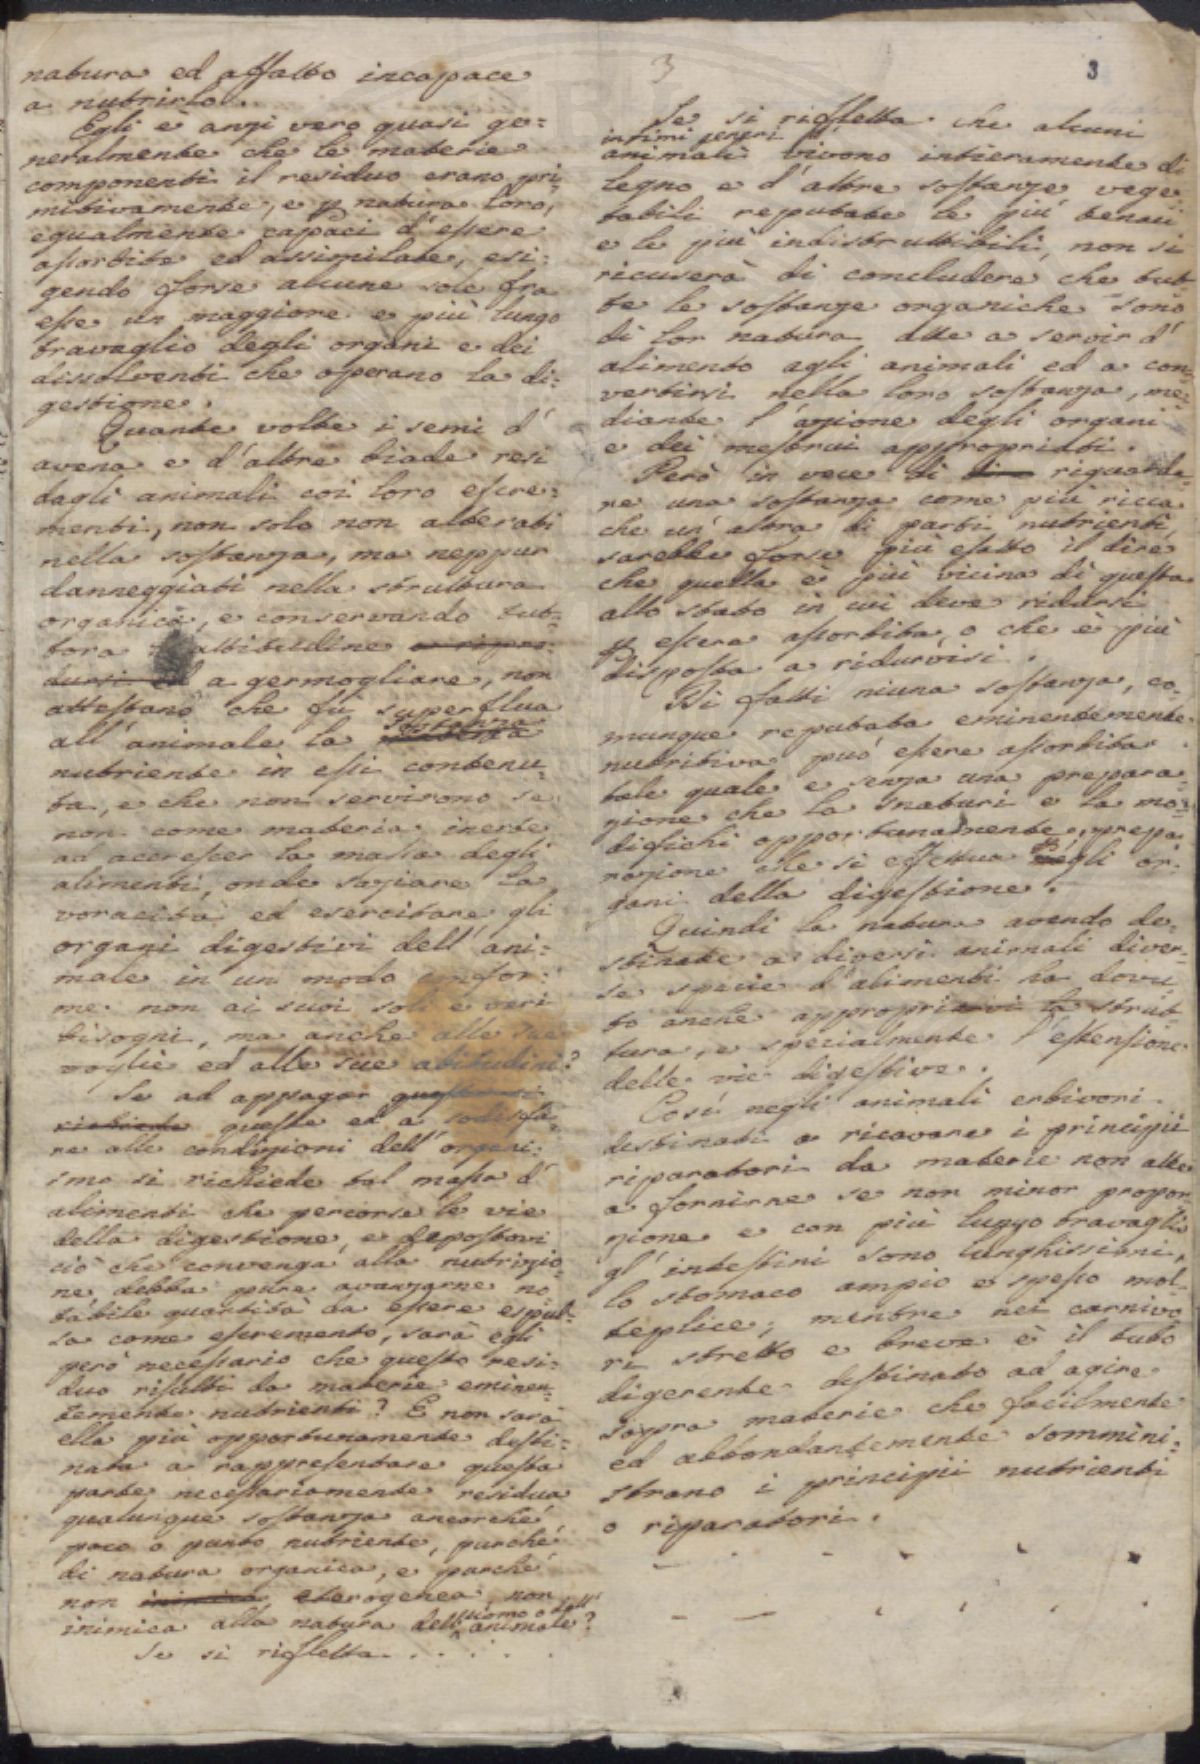 natura ed affatto incapace
a nutrirlo.
Egli è anzi vero quasi ge=
neralmente che le materie
componenti il residuo erano pri=
mitivamente, e p natura loro,
egualmente capaci d'essere
assorbite ed assimilate, esi=
gendo forse alcune sole fra
esse un maggiore e più lungo
travaglio degli organi e dei
dissolventi che operano la di=
gestione.
Quante volte i semi d'
avena e d'altre biade resi
dagli animali coi loro escre=
menti, non solo non alterati
nella sostanza, ma neppur
danneggiati nella struttura
organica, e conservando tut=
tora attitudine a ripro=
dursi ed a germogliare, non
attestano che fù superflua
sostanza
all'animale la
nutriente in essi contenu=
ta, e che non servirono se
non come materia inerte
ad accrescer la massa degli
alimenti, onde saziare la
voracità ed esercitare gli
organi digestivi dell'ani=
male in un modo confor=
me non ai suoi soli e veri
bisogni, ma anche alle sue
voglie ed alle sue abitudini?
Se ad appagar
richiede queste ed a sodisfa=
re alle condizioni dell'organi=
smo si richiede tal massa d'
alimenti che percorse le vie
della digestione, e depostovi
ciò che convenga alla nutrizio=
ne debba pure avanzarne no
tabile quantità da essere espul=
sa come escremento, sarà egli
però necessario che questo resi=
duo risulti da materie eminen=
temente nutrienti? E non sarà
ella più opportunamente desti=
nata a rappresentare questa
parte necessariamente residua
qualunque sostanza ancorché
poco o punto nutriente, purché
di natura organica, e purché
non inimica eterogenea, non
uomo o dell'
inimica alla natura dell'animale?
Se si rifletta . . . . .
3
3
Se si rifletta che alcuni
infimi generi d'
animali vivono intieramente di
legno e d'altre sostanze vege
tabili reputate le più tenaci
e le più indistruttibili, non si
ricuserà di concludere che tut=
te le sostanze organiche sono
di lor natura atte a servir d'
alimento agli animali ed a con=
vertirsi nella loro sostanza, me=
diante l'azione degli organi
e dei mestrui appropriati.
Però in vece di dire riguarda=
re una sostanza come più ricca
che un'altra di parti nutrienti,
sarebbe forse più esatto il dire
che quella è più vicina di questa
allo stato in cui deve ridursi
p essere assorbita, o che è più
disposta a ridurvisi.
Di fatti niuna sostanza, co=
munque reputata eminentemente
nutritiva può essere assorbita
tale quale e senza una prepara=
zione che la snaturi e la mo=
difichi opportunamente, prepa=
razione che si effettua negli or=
gani della digestione.
Quindi la natura avendo de=
stinate a diversi animali diver=
se specie d'alimenti ha dovu=
to anche appropriarvi la strut=
tura, e specialmente l'estensione
delle vie digestive.
Così negli animali erbivori
destinati a ricavare i principii
riparatori da materie non atte
a fornirne se non minor propor
zione e con più lungo travaglio
gl'intestini sono lunghissimi,
lo stomaco ampio e spesso mol=
teplice; mentre nei carnivo
ri stretto e breve è il tubo
digerente destinato ad agire
sopra materie che facilmente
ed abbondantemente sommini=
strano i principii nutrienti
o riparatori.